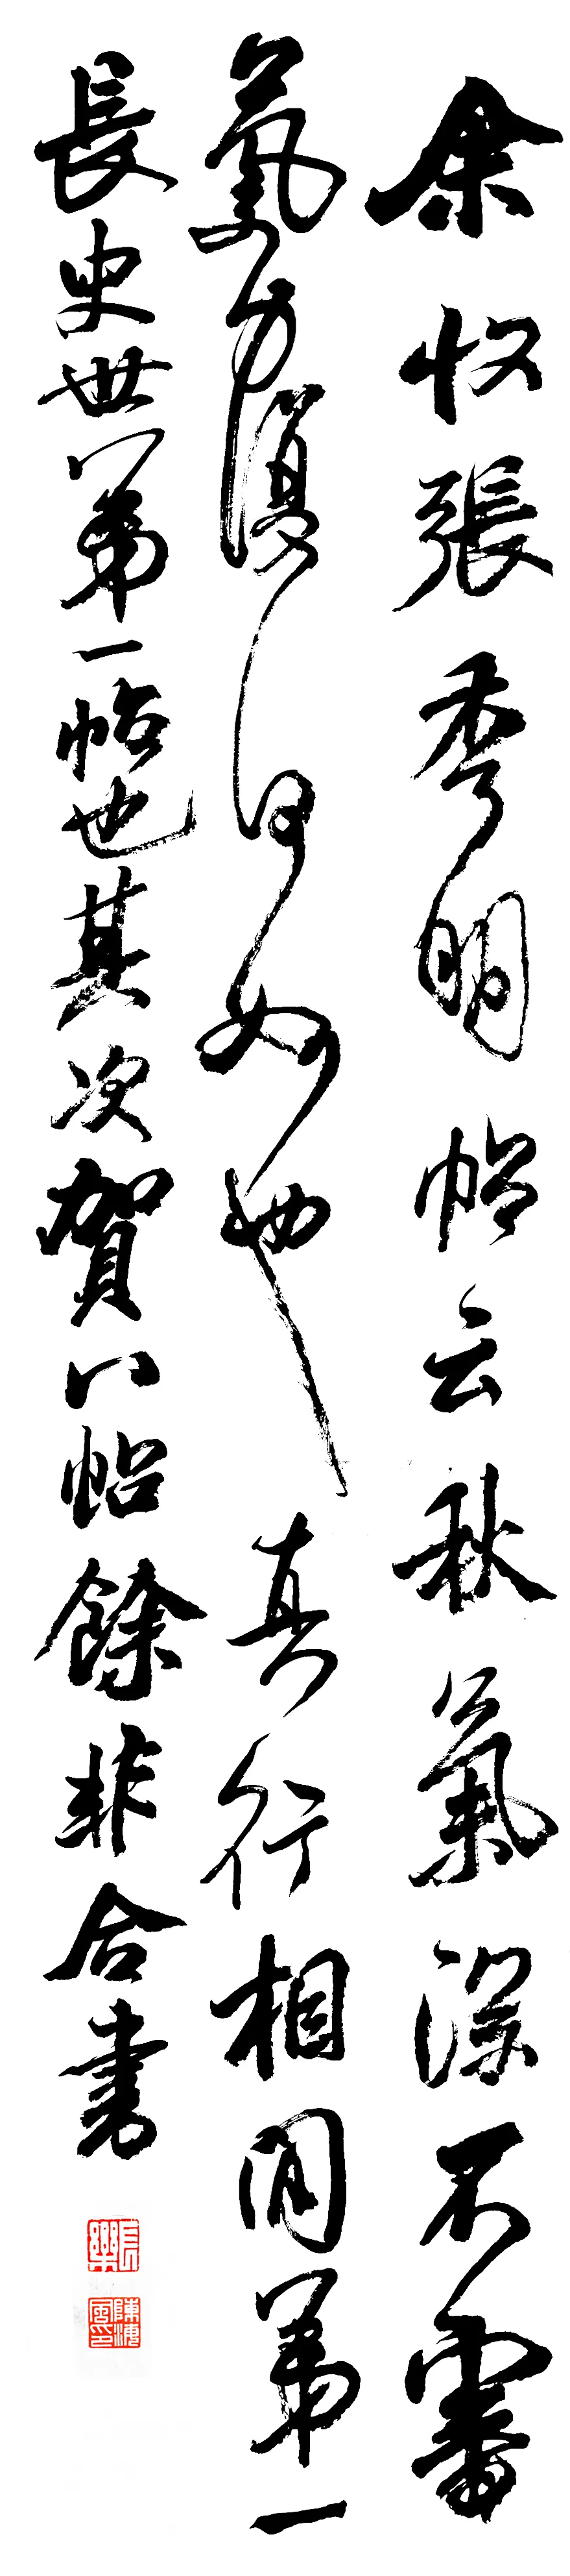 余收張季明帖云秋氣深不審
氣力復何如也真行相間第一
長史世間第一帖也其次賀八帖餘非合書
長樂